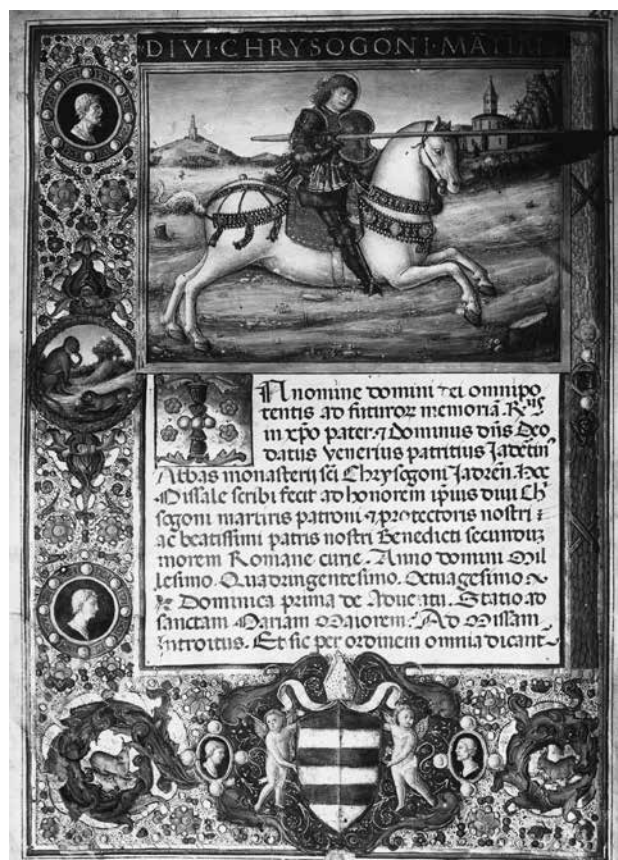 DIVI·CHRYSOGONI·MATIRI
In nomine domini dei omnipo
tentis ad futuroz memoriã. Rᵘˢ
in xp̄o pater ⁊ Dominus dñs Deo
datus Venerius patritius Jadeñ
Abbas monasterij sci Chrysogoni Jadreñ. Hoc
Missale scribi fecit ad honorem ip̄ius diui Ch
sogoni martiris patroni ⁊ protectoris nostri
ac beatissimi patris nostri Benedicti secunduz
morem Romane curie. Anno domini Mil
lesimo. Quadringentesimo. Octuagesimo
Dominica prima de Aduentu. Statio ad
sanctam Mariam Maiorem. Ad Missam
Introitus. Et sic per ordinem omnia dicant